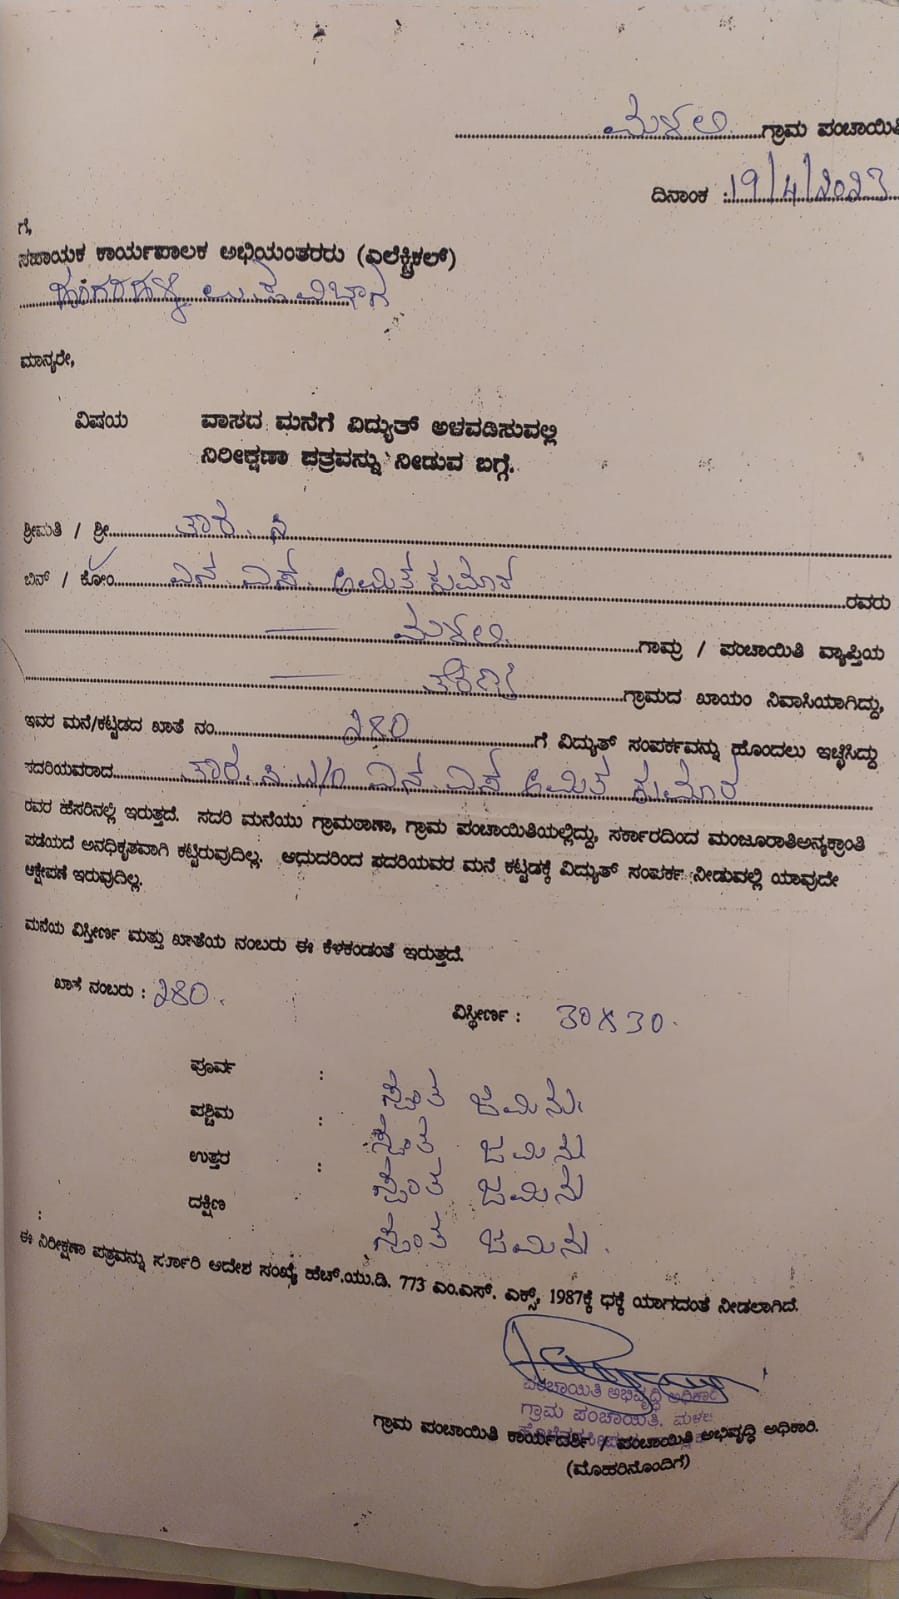 ಮಳಲಿ ಗ್ರಾಮ ಪಂಚಾಯಿತಿ
ದಿನಾಂಕ : 19/4/2023
ಗೆ,
ಸಹಾಯಕ ಕಾರ್ಯಪಾಲಕ ಅಭಿಯಂತರರು (ಎಲೆಕ್ಟ್ರಿಕಲ್)
ಹಂಗರಹಳ್ಳಿ ಉಪ ವಿಭಾಗ
ಮಾನ್ಯರೇ,
ವಿಷಯ ವಾಸದ ಮನೆಗೆ ವಿದ್ಯುತ್ ಅಳವಡಿಸುವಲ್ಲಿ
ನಿರೀಕ್ಷಣಾ ಪತ್ರವನ್ನು ನೀಡುವ ಬಗ್ಗೆ.
ಶ್ರೀಮತಿ / ಶ್ರೀ ತಾರ. ಸಿ
ಬಿನ್ / ಕೋಂ ಎನ್ ಎಸ್ ಅಮಿತ್ ಕುಮಾರ ರವರು
ಮಳಲಿ ಗಾಮ್ರ / ಪಂಚಾಯಿತಿ ವ್ಯಾಪ್ತಿಯ
ಗ್ರಾಮದ ಖಾಯಂ ನಿವಾಸಿಯಾಗಿದ್ದು,
ಇವರ ಮನೆ/ಕಟ್ಟಡದ ಖಾತೆ ನಂ. 280 ಗೆ ವಿದ್ಯುತ್ ಸಂಪರ್ಕವನ್ನು ಹೊಂದಲು ಇಚ್ಛಿಸಿದ್ದು
ಸದರಿಯವರಾದ ತಾರ. ಸಿ W/O ಎನ್ ಎಸ್ ಅಮಿತ್ ಕುಮಾರ
ರವರ ಹೆಸರಿನಲ್ಲಿ ಇರುತ್ತದೆ. ಸದರಿ ಮನೆಯು ಗ್ರಾಮಠಾಣಾ, ಗ್ರಾಮ ಪಂಚಾಯಿತಿಯಲ್ಲಿದ್ದು, ಸರ್ಕಾರದಿಂದ ಮಂಜೂರಾತಿಅನ್ಯಕ್ರಾಂತಿ
ಪಡೆಯದೆ ಅನಧಿಕೃತವಾಗಿ ಕಟ್ಟಿರುವುದಿಲ್ಲ. ಆಧುದರಿಂದ ಸದರಿಯವರ ಮನೆ ಕಟ್ಟಡಕ್ಕೆ ವಿದ್ಯುತ್ ಸಂಪರ್ಕ ನೀಡುವಲ್ಲಿ ಯಾವುದೇ
ಆಕ್ಷೇಪಣೆ ಇರುವುದಿಲ್ಲ.
ಮನೆಯ ವಿಸ್ತೀರ್ಣ ಮತ್ತು ಖಾತೆಯ ನಂಬರು ಈ ಕೆಳಕಂಡಂತೆ ಇರುತ್ತದೆ.
ಖಾತೆ ನಂಬರು : 280. ವಿಸ್ತೀರ್ಣ : 30X30.
ಪೂರ್ವ : ಸ್ವಂತ ಜಮೀನು.
ಪಶ್ಚಿಮ : ಸ್ವಂತ ಜಮೀನು
ಉತ್ತರ : ಸ್ವಂತ ಜಮೀನು
ದಕ್ಷಿಣ : ಸ್ವಂತ ಜಮೀನು.
ಈ ನಿರೀಕ್ಷಣಾ ಪತ್ರವನ್ನು ಸರ್ಕಾರಿ ಆದೇಶ ಸಂಖ್ಯೆ ಹೆಚ್.ಯು.ಡಿ. 773 ಎಂ.ಎಸ್. ಎಕ್ಸ್, 1987ಕ್ಕೆ ಧಕ್ಕೆ ಯಾಗದಂತೆ ನೀಡಲಾಗಿದೆ.
ಪಂಚಾಯಿತಿ ಅಭಿವೃದ್ಧಿ ಅಧಿಕಾರಿ
ಗ್ರಾಮ ಪಂಚಾಯಿತಿ, ಮಳಲಿ
ಗ್ರಾಮ ಪಂಚಾಯಿತಿ ಕಾರ್ಯದರ್ಶಿ / ಪಂಚಾಯಿತಿ ಅಭಿವೃದ್ಧಿ ಅಧಿಕಾರಿ.
(ಮೊಹರಿನೊಂದಿಗೆ)